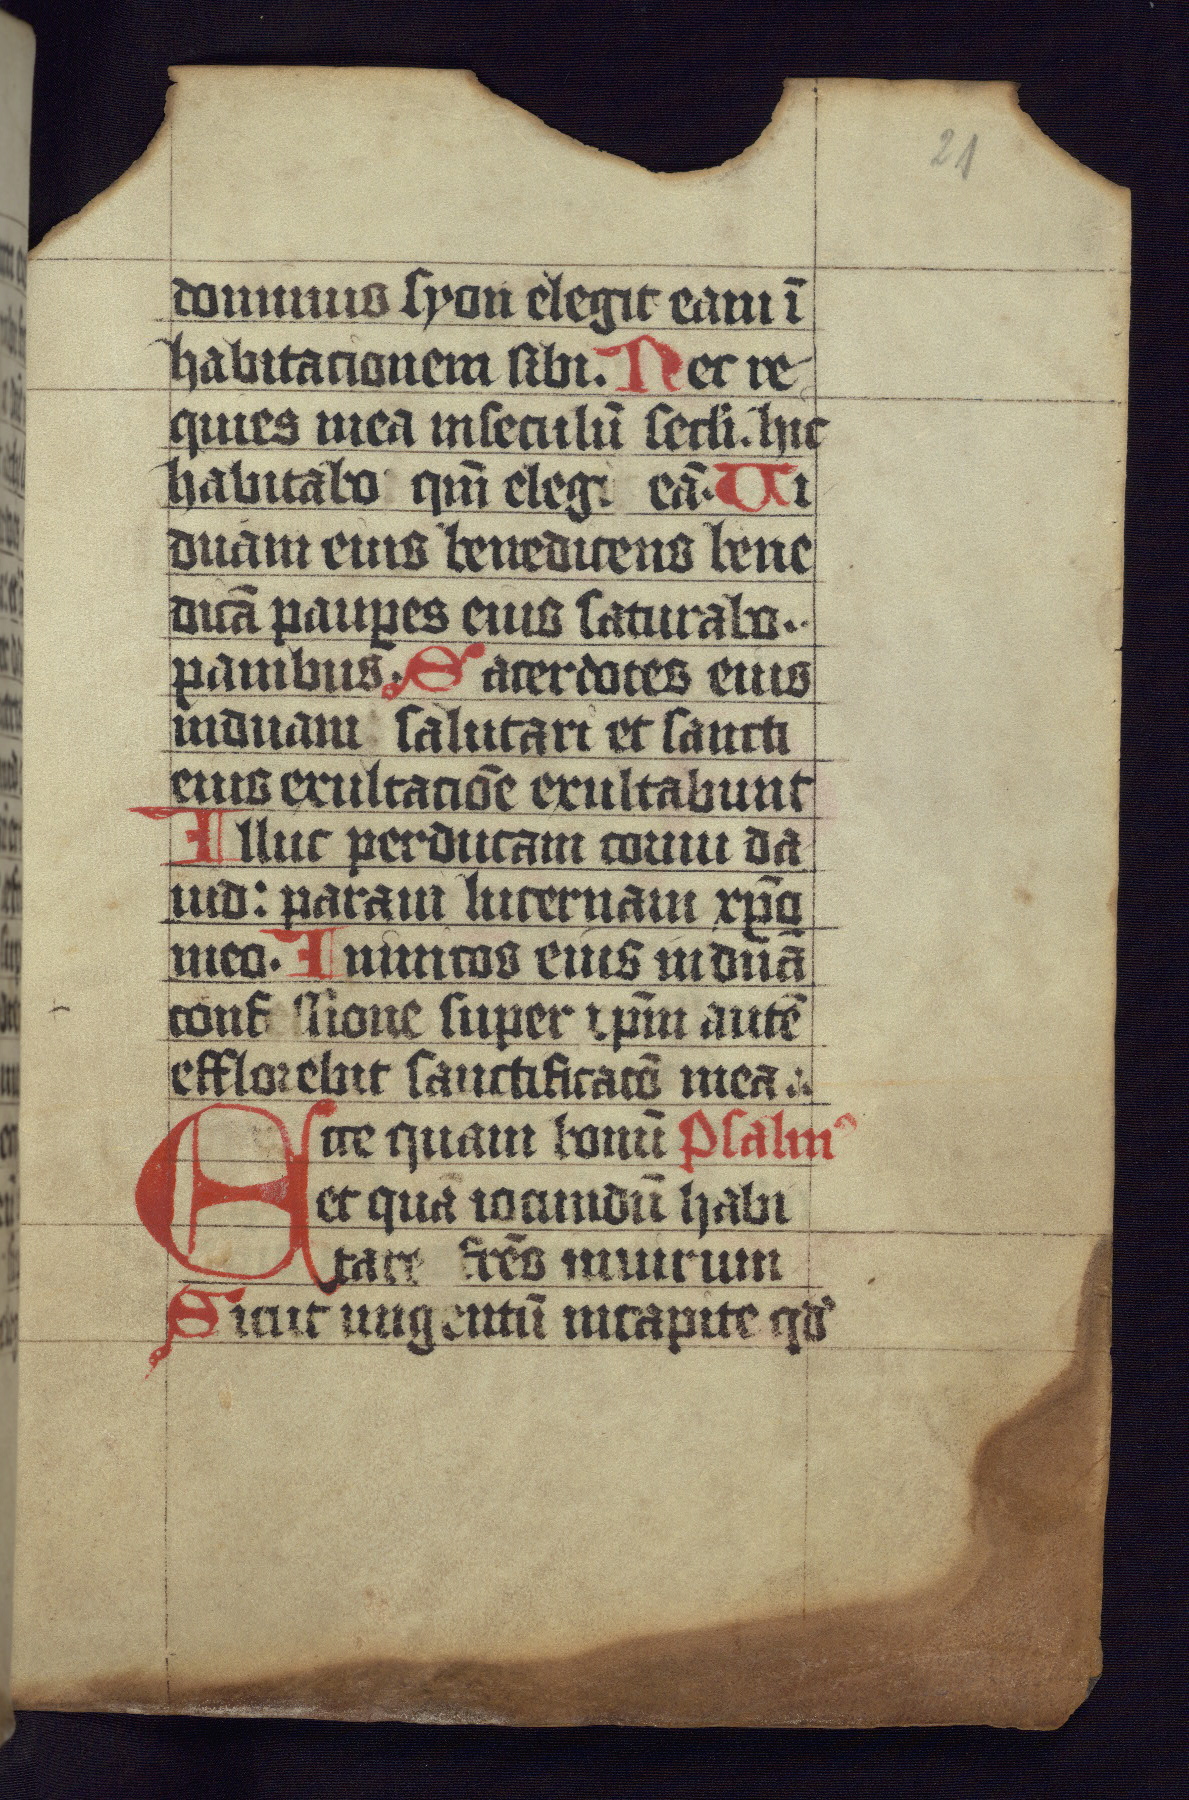 21
dominus syon elegit eam ī
habitacionem sibi. Nec re
quies mea inseculū secli. hic
habitabo qm̄ elegi eā. Ui
duam eius benedicens bene
dicā paup̱es eius saturabo.
panibus. Sacerdotes eius
induam salutari et sancti
eius exultaciōe exultabunt
Illuc perducam cornu da
uid: paraui lucernam xp̄o
meo. Inimicos eius induā
confessione super ip̄m autē
efflorebit sanctificatō mea.
Ecce quam bonū Psalm᷒
et quā iocundū habi
tare fr̄es inuirum
Sicut ungentū incapite qd̕